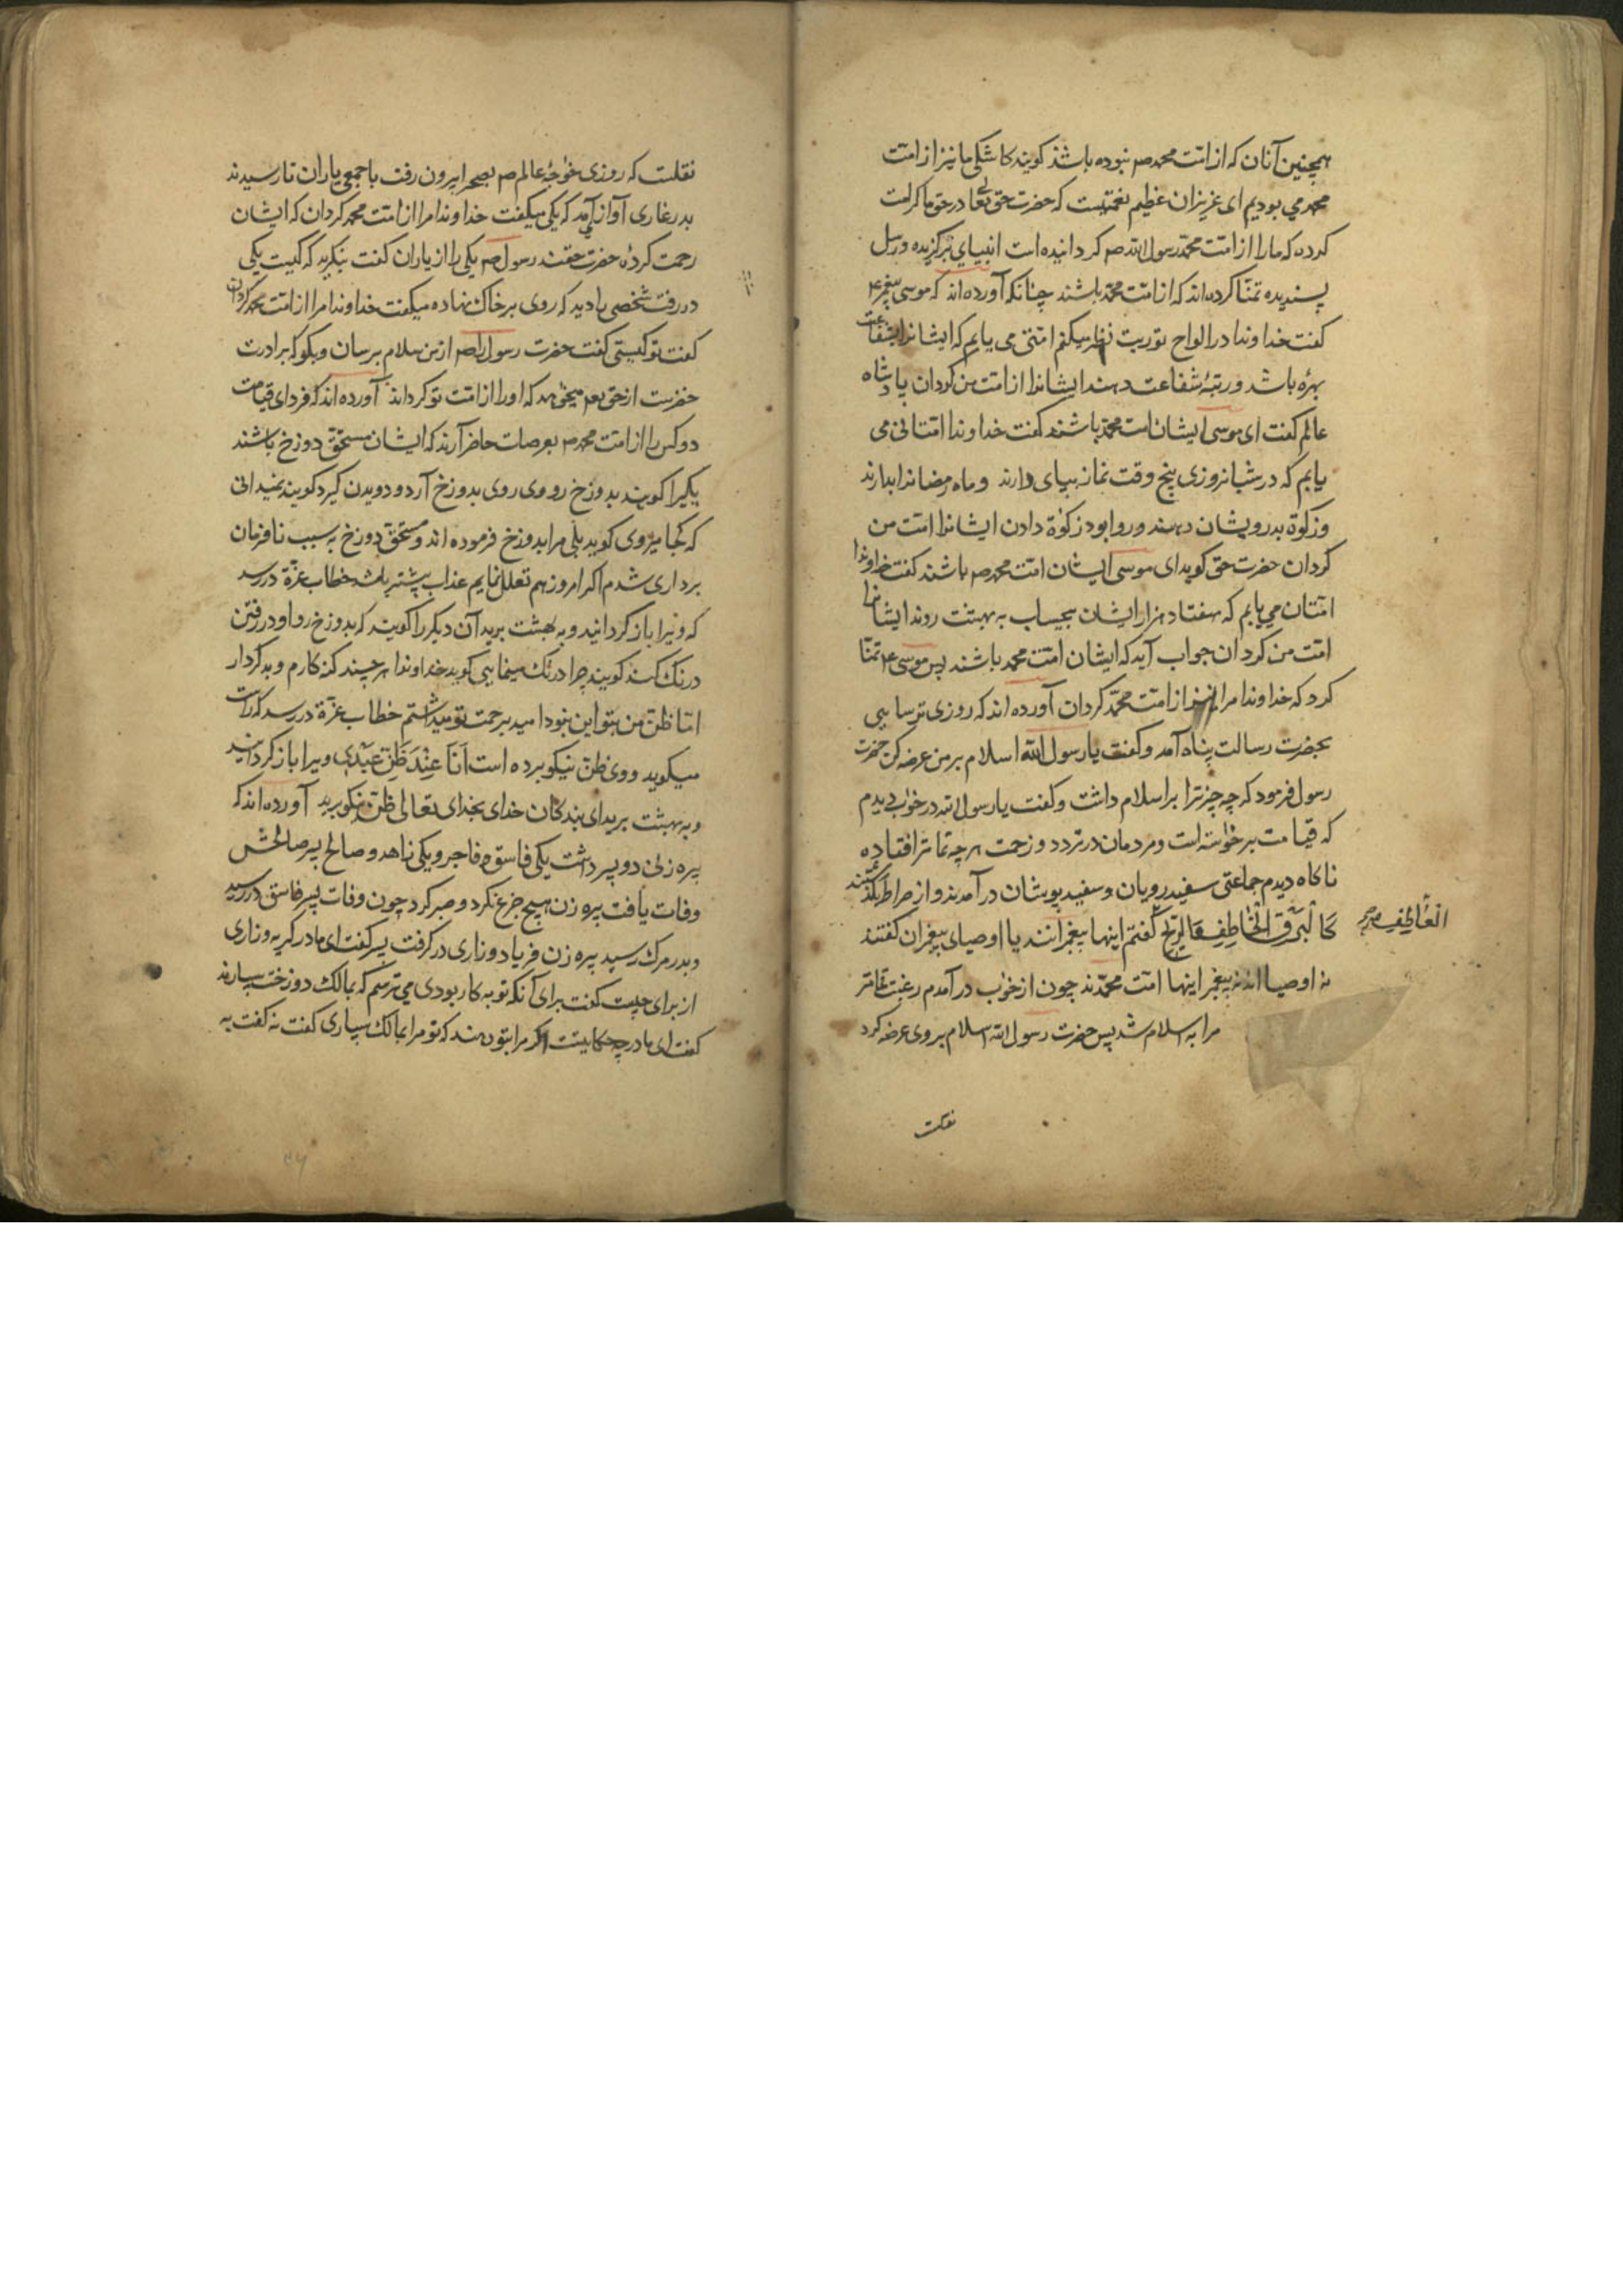 همچنین آنان که از امت محمد صم نبوده باشند کویند کاشکی ما نیز از امت
محمد می بودیم ای عزیزان عظیم نعمتیست که حضرت حق تعا در حق ما کرامت
کرده که ما را از امت محمد رسول الله صم کردانیده است انبیای برکزیده و رسل
پسندیده تمنا کرده اند که از امت محمد باشند چنانکه آورده اند که موسی پیغمبر ۴
کفت خداوندا در الواح توریت نظر میکنم امتی می یابم که ایشانرا شفاعت
بهره باشد و رتبهٔ شفاعت دهند ایشانرا از امت من کردان پادشاه
عالم کفت ای موسی ایشان امت محمد باشند کفت خداوندا امتانی می
یابم که در شبانروزی پنج وقت نماز بپای دارند و ماه رمضانرا بدارند
و زکوة بدرویشان دهند و روا بود زکوة دادن ایشانرا امت من
کردان حضرت حق کوید ای موسی ایشان امت محمد صم باشند کفت خداوندا
امتان می یابم که هفتاد هزار ایشان بیحساب به بهشت روند ایشانرا
امت من کردان جواب آید که ایشان امت محمد باشند پس موسی ۴ تمنا
کرد که خداوندا مرا نیز از امت محمد کردان آورده اند که روزی ترسایی
بحضرت رسالت پناه آمد و کفت یا رسول الله اسلام بر من عرضه کن حضرت
رسول فرمود که چه چیز ترا بر اسلام داشت و کفت یا رسول الله در خواب دیدم
که قیامت برخواسته است و مردمان در تردد و زحمت هر چه تمامتر افتاده
ناکاه دیدم جماعتی سفید رویان و سفید پوشان در آمدند و از صراط بکذشتند
کَالْبَرْقِ الْخَاطِفِ کالریح کفتم اینها پیغمبرانند یا اوصیای پیغمبران کفتند
العاطف صح
نه اوصیا اند نه پیغمبر اینها امت محمدند چون از خواب در آمدم رغبت تمامتر
مرا به اسلام شد پس حضرت رسول الله اسلام بر وی عرضه کرد
نقلست
نقلست که روزی خواجهٔ عالم صم بصحرا بیرون رفت با جمعی یاران تا رسیدند
بدر غاری آواز می آمد که یکی میکفت خداوندا مرا از امت محمد کردان که ایشان
رحمت کردهٔ حضرت حقند رسول صم یکی را از یاران کفت بنکرید که کیست یکی
در رفت شخصی را دید که روی بر خاک نهاده میکفت خداوندا مرا از امت محمد کردان
کفت تو کیستی کفت حضرت رسول را صم از من سلام برسان و بکو که برادرت
خضرست از حق تعم میخواهد که او را از امت تو کرداند آورده اند که فردای قیامت
دو کس را از امت محمد صم بعرصات حاضر آرند که ایشان مستحق دوزخ باشند
یکیرا کویند بدوزخ رو وی روی بدوزخ آرد و دویدن کیرد کویند نمیدانی
که کجا میروی کوید بلی مرا بدوزخ فرموده اند و مستحق دوزخ به سبب نافرمان
برداری شدم اکر امروز هم تعلل نمایم عذاب بیشتر باشد خطاب عزة در رسد
که ویرا باز کردانید و به بهشت برید آن دیکر را کویند که بدوزخ رو او در رفتن
درنک کند کویند چرا درنک مینمایی کوید خداوندا هر چند کنه کارم و بد کردار
اما ظن من بتو این نبود امید برحمت تو میداشتم خطاب عزة در رسد که راست
میکوید و وی ظن نیکو برده است اَنَا عِنْدَ ظَنِّ عَبْدِی ویرا باز کردانید
و به بهشت برید ای بندکان خدای بخدای تعالی ظن نیکو برید آورده اند که
پیره زنی دو پسر داشت یکی فاسق و فاجر و یکی زاهد و صالح پسر صالحش
وفات یافت پیره زن هیچ جزع نکرد و صبر کرد چون وفات پسر فاسق در رسید
و بدر مرک رسید پیره زن فریاد و زاری در کرفت پسر کفت ای مادر کریه و زاری
از برای چیست کفت برای آنکه تو به کار بودی می ترسم که بمالک دوزخت سپارند
کفت ای مادر چه حکایتست اکر مرا بتو دهند که تو مرا بمالک سپاری کفت نه کفت به